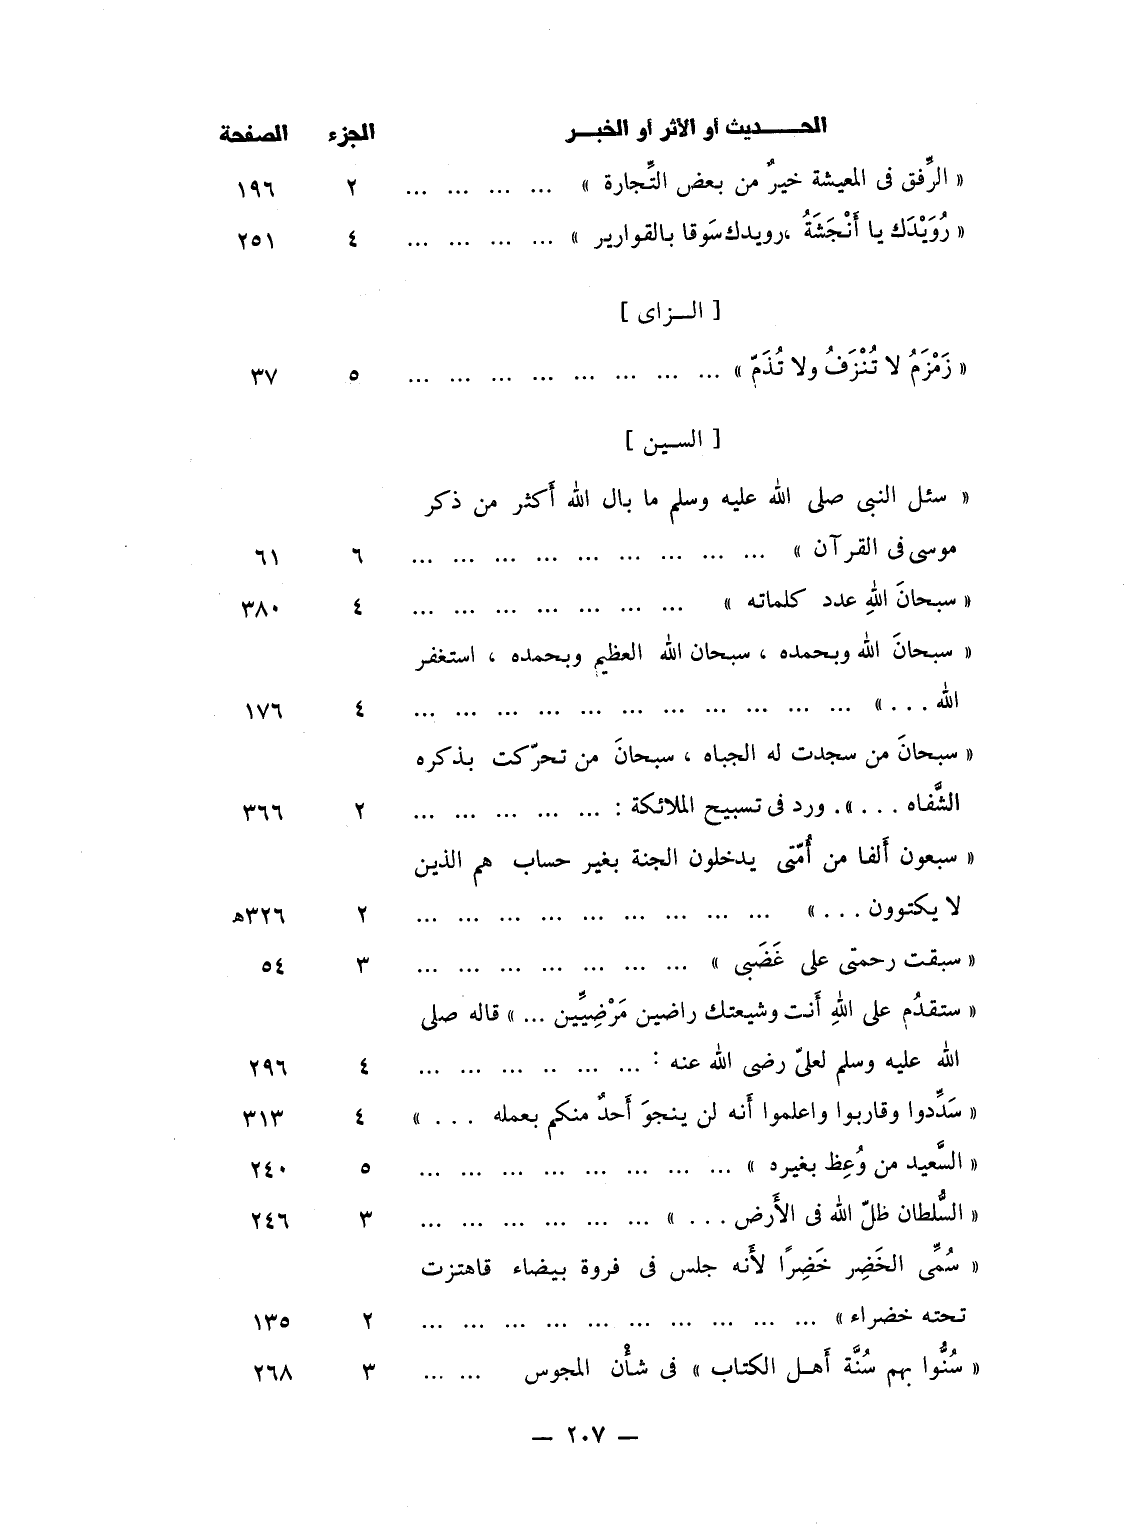 الحـــديث أو الأثر أو الخبـر الجزء الصفحة
« الرِّفق فى المعيشة خيرٌ من بعض التِّجارة » ... ... ... ... ٢ ١٩٦
« رُوَيْدَك يا أَنْجَشَةُ ،رويدك سَوقا بالقوارير » ... ... ... ... ٤ ٢٥١
[ الـــزاى ]
« زَمْزَمُ لا تُنْزَفُ ولا تُذَمّ » ... ... ... ... ... ... ... ... ٥ ٣٧
[ السـين ]
« سئل النبى صلى الله عليه وسلم ما بال الله أَكثر من ذكر
موسى فى القرآن » ... ... ... ... ... ... ... ... ... ٦ ٦١
« سبحانَ اللهِ عدد كلماته » ... ... ... ... ... ... ... ٤ ٣٨٠
« سبحانَ الله وبحمده ، سبحان الله العظيم وبحمده ، استغفر
الله . . . » ... ... ... ... ... ... ... ... ... ... ... ٤ ١٧٦
« سبحانَ من سجدت له الجباه ، سبحانَ من تحرّكت بذكره
الشَّفاه . . . ». ورد فى تسبيح الملائكة : ... ... ... ... ... ٢ ٣٦٦
« سبعون أَلفا من أُمّتى يدخلون الجنة بغير حساب هم الذين
لا يكتوون . . . » ... ... ... ... ... ... ... ... ... ٢ ٣٢٦هـ
« سبقت رحمتى على غَضَبى » ... ... ... ... ... ... ... ٣ ٥٤
« ستقدُم على اللهِ أَنت وشيعتك راضين مَرْضِيِّين ... » قاله صلى
الله عليه وسلم لعلىّ رضى الله عنه : ... ... .. ... ... ... ٤ ٢٩٦
« سَدِّدوا وقاربوا واعلموا أَنه لن ينجوَ أَحدٌ منكم بعمله . . . » ٤ ٣١٣
« السَّعيد من وُعِظ بغيره » ... ... ... ... ... ... ... ... ٥ ٢٤٠
« السُّلطان ظلّ الله فى الأَرض . . . » ... ... ... ... ... ... ٣ ٢٤٦
« سُمِّى الخَضِر خَضِرًا لأَنه جلس فى فروة بيضاء قاهتزت
تحته خضراء » ... ... ... ... ... ... ... ... ... ... ٢ ١٣٥
« سُنُّوا بهم سُنَّة أَهـل الكتاب » فى شأْن المجوس ... ... ٣ ٢٦٨
— ٢٠٧ —